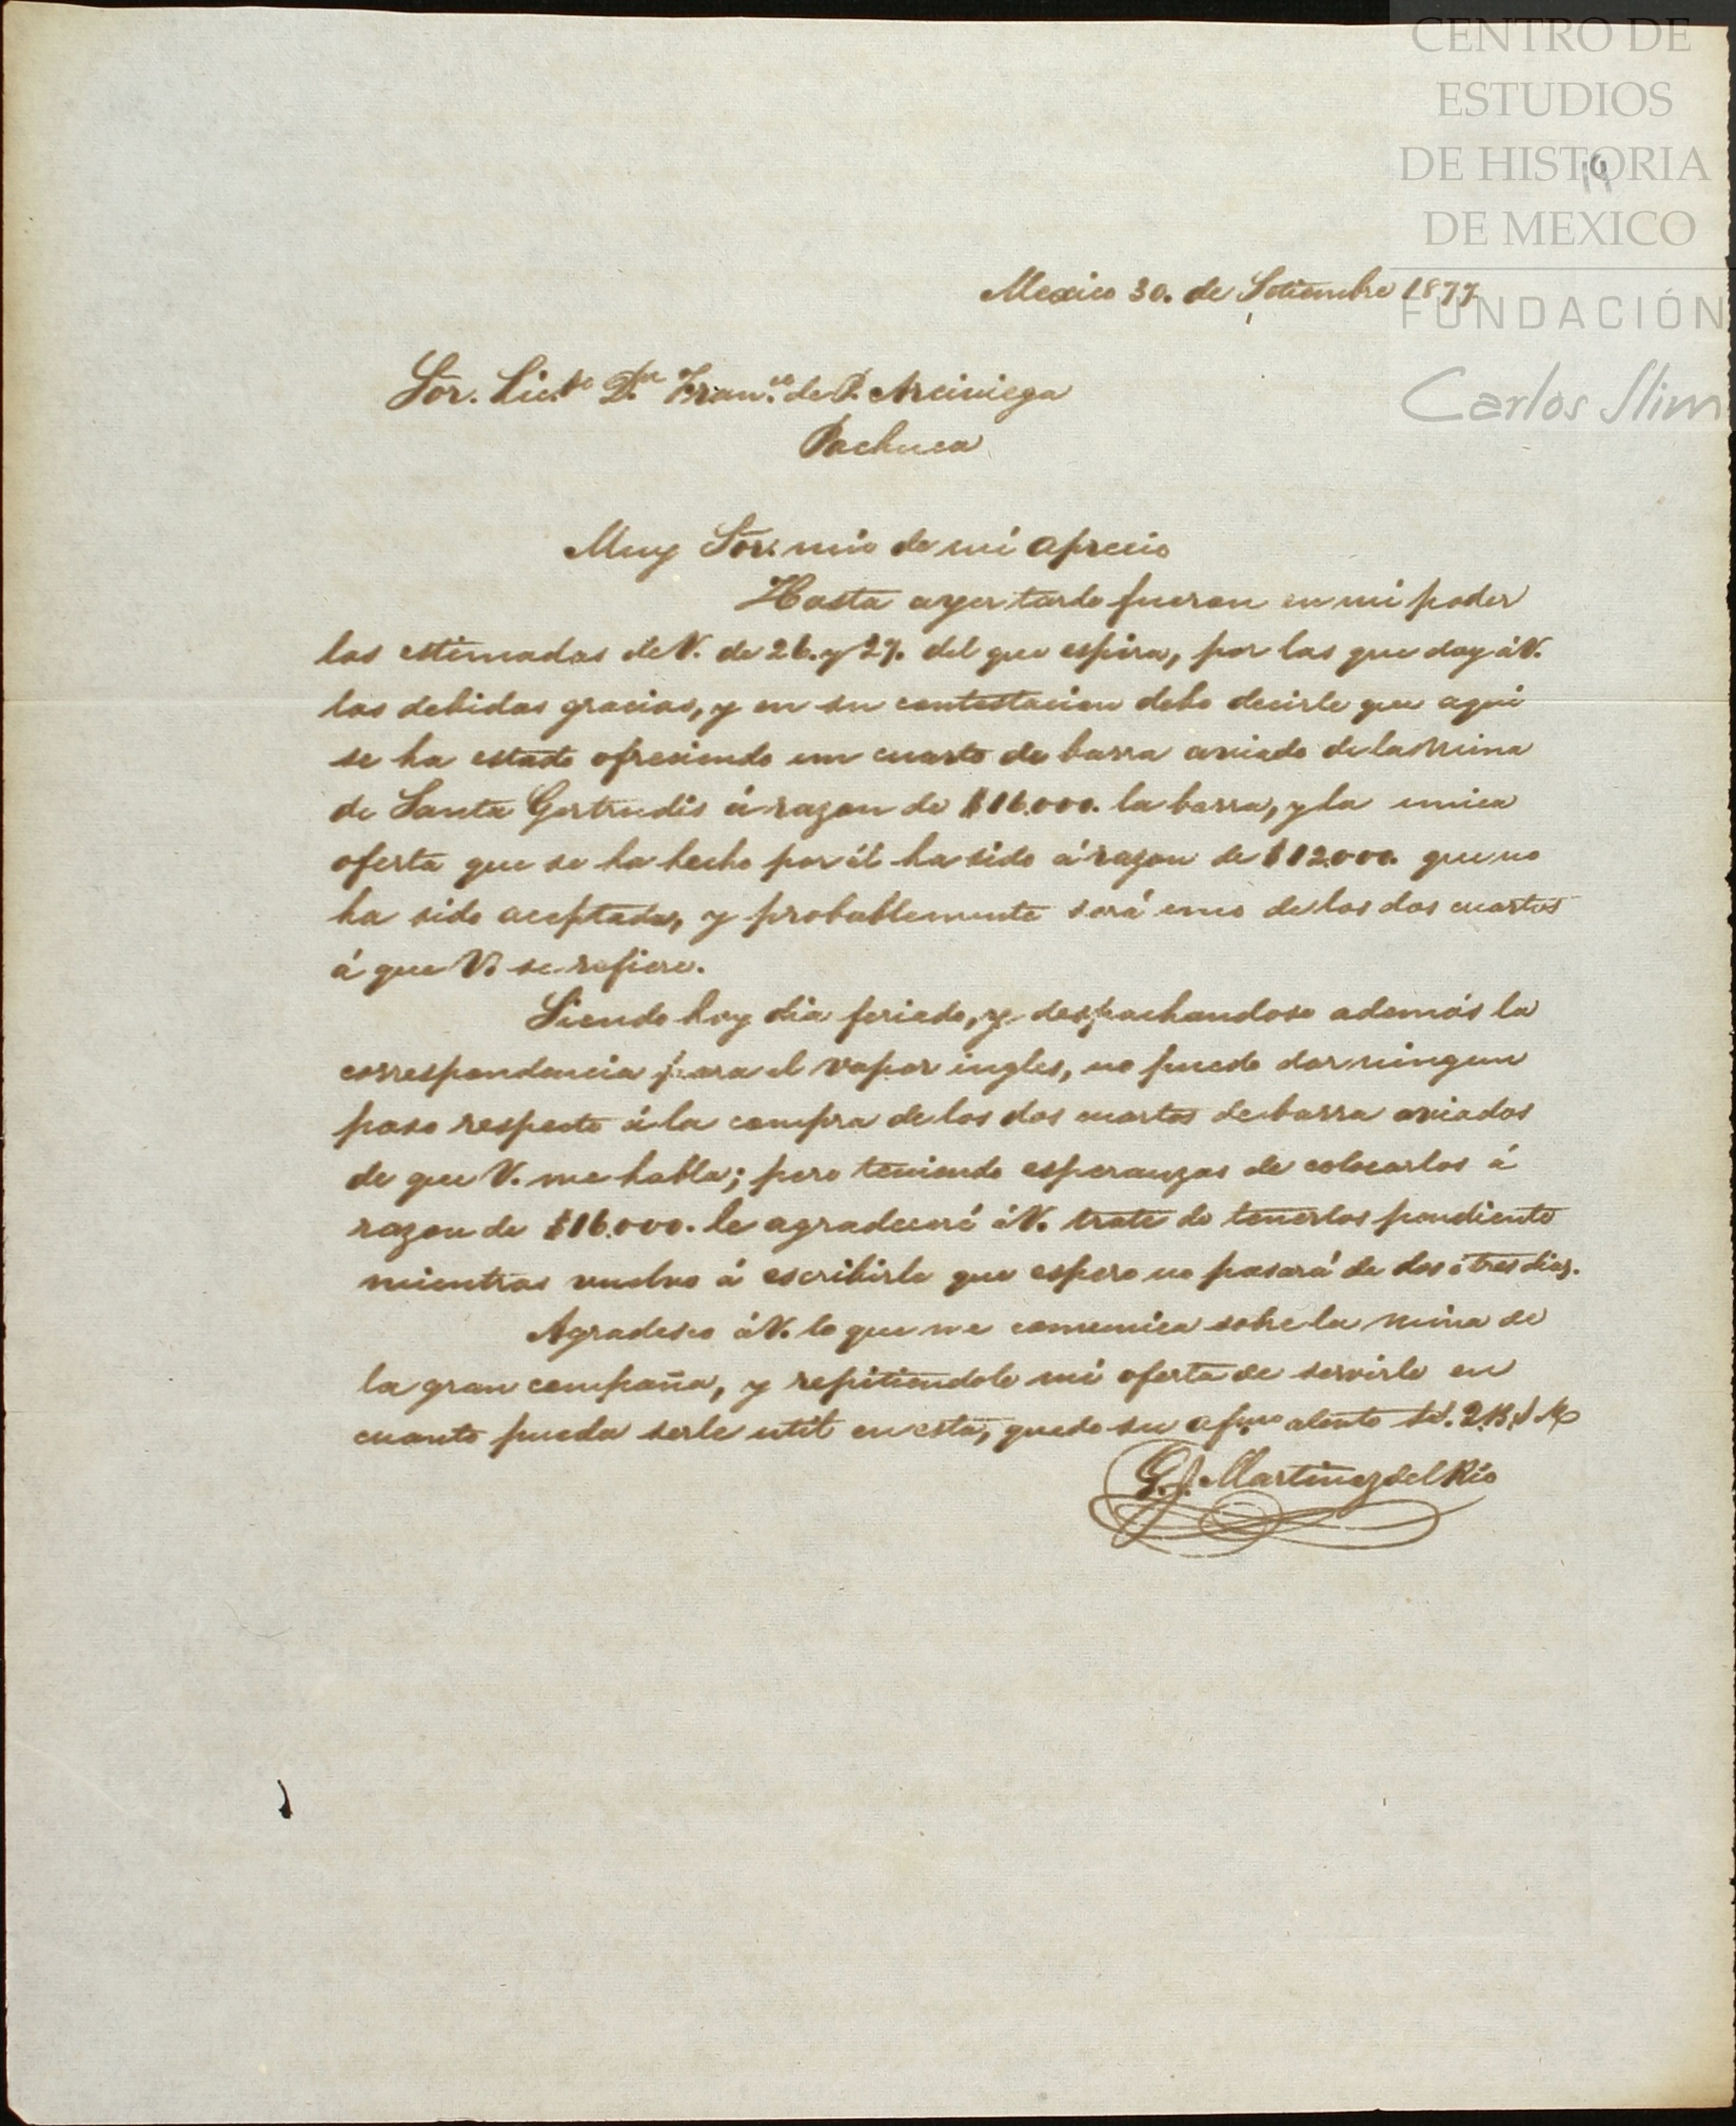 CENTRO DE
ESTUDIOS
DE HISTORIA
DE MEXICO
FUNDACIÓN
Carlos Slim
19
Mexico 30. de Setiembre 1877
Sor. Licdo Dn Franco de P. Arciniega
Pachuca
Muy Sor. mio de mi aprecio
Hasta ayer tarde fueron en mi poder
las estimadas de V. de 26. y 27. del que espira, por las que doy á V.
las debidas gracias, y en su contestacion debo decirle que aqui
se ha estado ofreciendo un cuarto de barra aviado de la Mina
de Santa Gertrudis á razon de $16.000. la barra, y la unica
oferta que se ha hecho por él ha sido á razon de $12.000. que no
ha sido aceptada, y probablemente será uno de los dos cuartos
á que V. se refiere.
Siendo hoy dia feriado, y despachandose además la
correspondencia para el vapor ingles, no puedo dar ningun
paso respecto á la compra de los dos cuartos de barra aviados
de que V. me habla; pero teniendo esperanzas de colocarlos á
razon de $16.000. le agradeceré á V. trate de tenerlos pendiente
mientras vuelvo á escribirle que espero no pasará de dos ó tres dias.
Agradesco á V. lo que me comunica sobre la mina de
la gran compaña, y repitiendole mi oferta de servirle en
cuanto pueda serle util en esta, quedo su afmo atento Q.B.S.M
G. J. Martinez del Rio